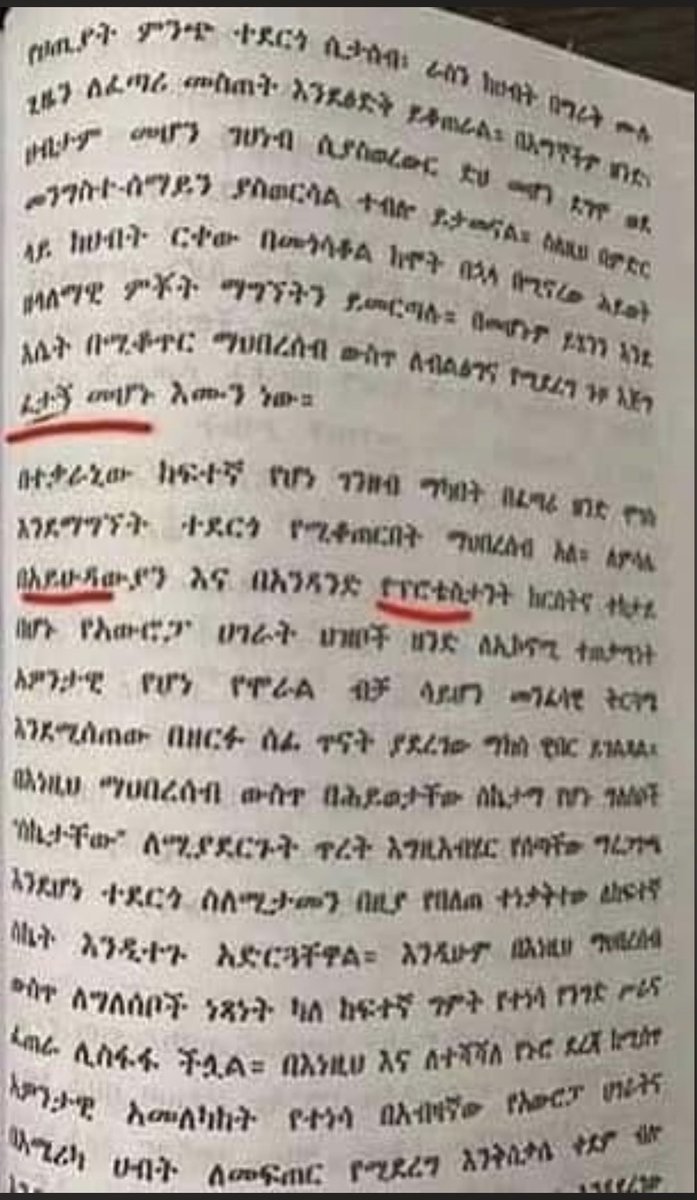 የሀጢያት ምንጭ ተደርጎ ሲታሰብ፣ ራስን ከሀብት በማራቅ ሙሉ
ጊዜን ለፈጣሪ መስጠት እንደፅድት ይቆጠራል። በእግኞችም ዘንድ፣
ሀብታም መሆን ገሀነብ ሲያስወረውር ድህ መሆን ደግሞ ወደ
መንግስተ-ሰማይን ያስወርሳል ተብሎ ይታመናል። ስለዚህ በምድር
ላይ ከሀብት ርቀው በመጎሳቆል ከሞት በኋላ በሚኖረው ሕይወት
ዘላለማዊ ምቾት ማግኘትን ይመርጣሉ። በመሆኑም ይኼንን እንደ
እሴት በሚቆጥር ማህበረሰብ ውስጥ ለብልፅግና የሚደረግ ጉዞ እጅግ
ፈታኝ መሆኑ እሙን ነው።
በተቃራኒው ከፍተኛ የሆነ ገንዘብ ማካበት በፈጣሪ ዘንድ ሞገስ
እንደማግኘት ተደርጎ የሚቆጠርበት ማህበረሰብ አለ። ለምሳሌ
በአይሁዳውያን እና በአንዳንድ የፕሮቴስታንት ክርስትና ተከታይ
በሆኑ የአውሮፓ ሀገራት ህዝቦች ዘንድ ለኢኮኖሚ ተጠቃሚነት
አዎንታዊ የሆነ የሞራል ብቻ ሳይሆን መንፈሳዊ ትርጉሜ
እንደሚሰጠው በዘርፉ ሰፊ ጥናት ያደረገው ማክስ ዌበር ይገልፃል።
በእነዚህ ማህበረሰብ ውስጥ በሕይወታቸው ስኬታማ የሆኑ ግለሰቦች
"ስኬታቸው" ለሚያደርጉት ጥረት እግዚአብሄር የሰጣቸው ማረጋገጫ
እንደሆነ ተደርጎ ስለሚታመን በዚያ የበለጠ ተነቃትተው ለከፍተኛ
ስኬት እንዲተጉ አድርጓቸዋል። እንዲሁም በእነዚህ ማህበረሰብ
ውስጥ ለግለሰቦች ነጻነት ካለ ከፍተኛ ግምት የተነሳ የንግድ ሥራና
ፈጠራ ሊስፋፋ ችሏል። በእነዚህ እና ለተሻሻለ የኑሮ ደረጃ ከሚሰጥ
አዎንታዊ አመለካከት የተነሳ በአብዛኛው የአውሮፓ ሀገራትና
በአሜሪካ ሀብት ለመፍጠር የሚደረግ እንቅስቃሴ ቀደም ብሎ